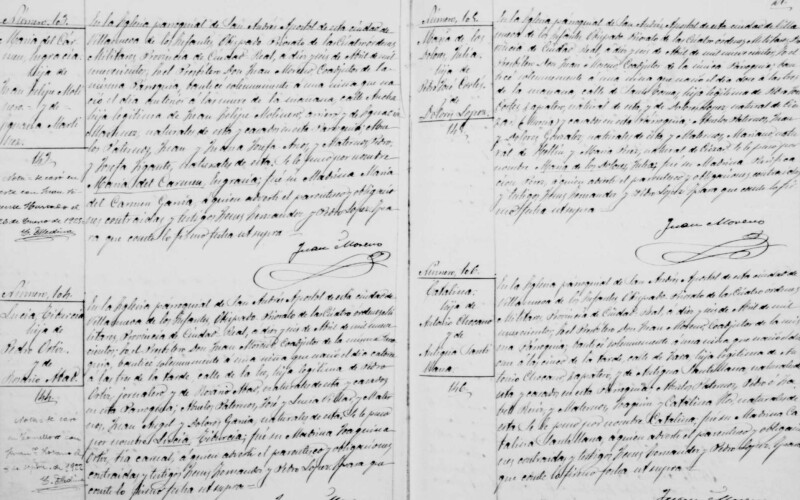 Número, 163.
María del Car-
men, Engracia
hija de
Juan Felipe Moli-
nero y de
Ignacia Martí-
nez.
163
En la Iglesia parroquial de San Andrés Apóstol de esta ciudad de
Villanueva de los Infantes, Obispado Priorato de las Cuatro ordenes
Militares, Provincia de Ciudad Real, á diez y seis de Abril de mil
novecientos; Yo el Presbítero Don Juan Moreno Coadjutor de la
misma Parroquia, bauticé solemnemente á una niña que na-
ció el día anterior á las nueve de la mañana, calle Ancha
hija legítima de Juan Felipe Molinero, y de Ignacia
Martínez naturales de esta, y casados en esta Parroquia; Abue-
los Paternos, Juan y Josefa y Maternos, Pedro,
y Josefa naturales de esta; Se le puso por nombre
María del Carmen, Engracia; fué su Madrina María
del Carmen García, á quien advertí el parentesco y obligacio-
nes contraídas, y testigos, Jesús Fernández y Pedro López; y pa-
ra que conste lo firmo fecha ut supra=
Juan Moreno
Número, 164.
Lucía, Tiburcia
hija de
Pedro Ortiz
y de
Rosario Abad.
164
En la Iglesia parroquial de San Andrés Apóstol de esta ciudad de
Villanueva de los Infantes, Obispado Priorato de las Cuatro ordenes mili-
tares, Provincia de Ciudad Real, á diez y seis de Abril de mil nove-
cientos; Yo el Presbítero Don Juan Moreno Coadjutor de la misma Parro-
quia, bauticé solemnemente á una niña que nació el día catorce
á las tres de la tarde, calle de la hija legítima de Pedro
Ortiz, jornalero y de Rosario Abad, naturales de esta y casados
en esta Parroquia; Abuelos Paternos, José y Lucía y Mater-
nos, Juan Angel y Dolores García, naturales de esta; Se le puso
por nombre Lucía, Tiburcia; fué su Madrina Joaquina
Ortiz, tía carnal, á quien advertí el parentesco y obligaciones
contraídas, y testigos, Jesús Fernández y Pedro López; y para que
conste lo firmo fecha ut supra=
Número, 165.
María de los
Dolores, Julia
hija de
Pedro Cortés
de
Dolores López.
165
En la Iglesia parroquial de San Andrés Apóstol de esta ciudad de Villa-
nueva de los Infantes, Obispado Priorato de las Cuatro ordenes Militares, Pro-
vincia de Ciudad Real, á diez y seis de Abril de mil novecientos; Yo el
Presbítero Don Juan Moreno Coadjutor de la única Parroquia, bau-
ticé solemnemente á una niña que nació el día doce á las tres
de la mañana, calle de Santo Tomás, hija legítima de Pedro
Cortés zapatero, natural de esta, y de Dolores López natural de
y casados en esta Parroquia; Abuelos Paternos, Juan
y Dolores González, naturales de esta, y Maternos, Mariano natu-
ral de Hellín y María natural de Se le puso por nom-
bre María de los Dolores, Julia; fué su Madrina
á quien advertí el parentesco y obligaciones contraídas,
y testigos, Jesús Fernández y Pedro López; y para que conste lo fir-
mo fecha ut supra=
Juan Moreno
Número, 166.
Catalina
hija de
Antonio Chocano
y de
Antigua Santi-
llana.
166
En la Iglesia parroquial de San Andrés Apóstol de esta ciudad de
Villanueva de los Infantes, Obispado Priorato de las Cuatro ordenes
Militares, Provincia de Ciudad Real, á diez y seis de Abril de mil
novecientos; Yo el Presbítero Don Juan Moreno, Coadjutor de la mis-
ma Parroquia, bauticé solemnemente á una niña que nació el día
once á las cinco de la tarde, calle de hija legítima de An-
tonio Chocano zapatero, y de Antigua Santillana, naturales de esta
y casados en esta Parroquia; Abuelos Paternos, Pedro é Isa-
bel Ruiz, y Maternos, Joaquín y Catalina naturales
de esta. Se le puso por nombre Catalina; fué su Madrina Ca-
talina Santillana, á quien advertí el parentesco y obligacio-
nes contraídas, y testigos, Jesús Fernández, y Pedro López; y para
que conste lo firmo fecha ut supra=
Juan Moreno